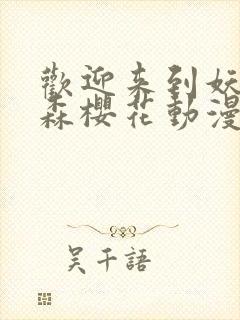 歡迎来到妖
森櫻花動漫
吴千語